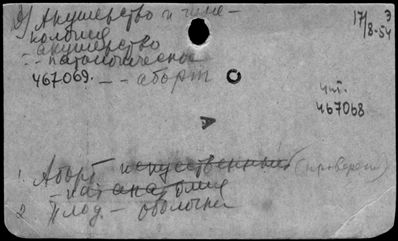 Э) Акушерство и гине-
кология
- акушерство
- - патологическое
467069. - - аборт
17/8-54 Э
чит.
467068
1. Аборт искусственный (проверен)
пат. анатомия
2 Плод - оболочки